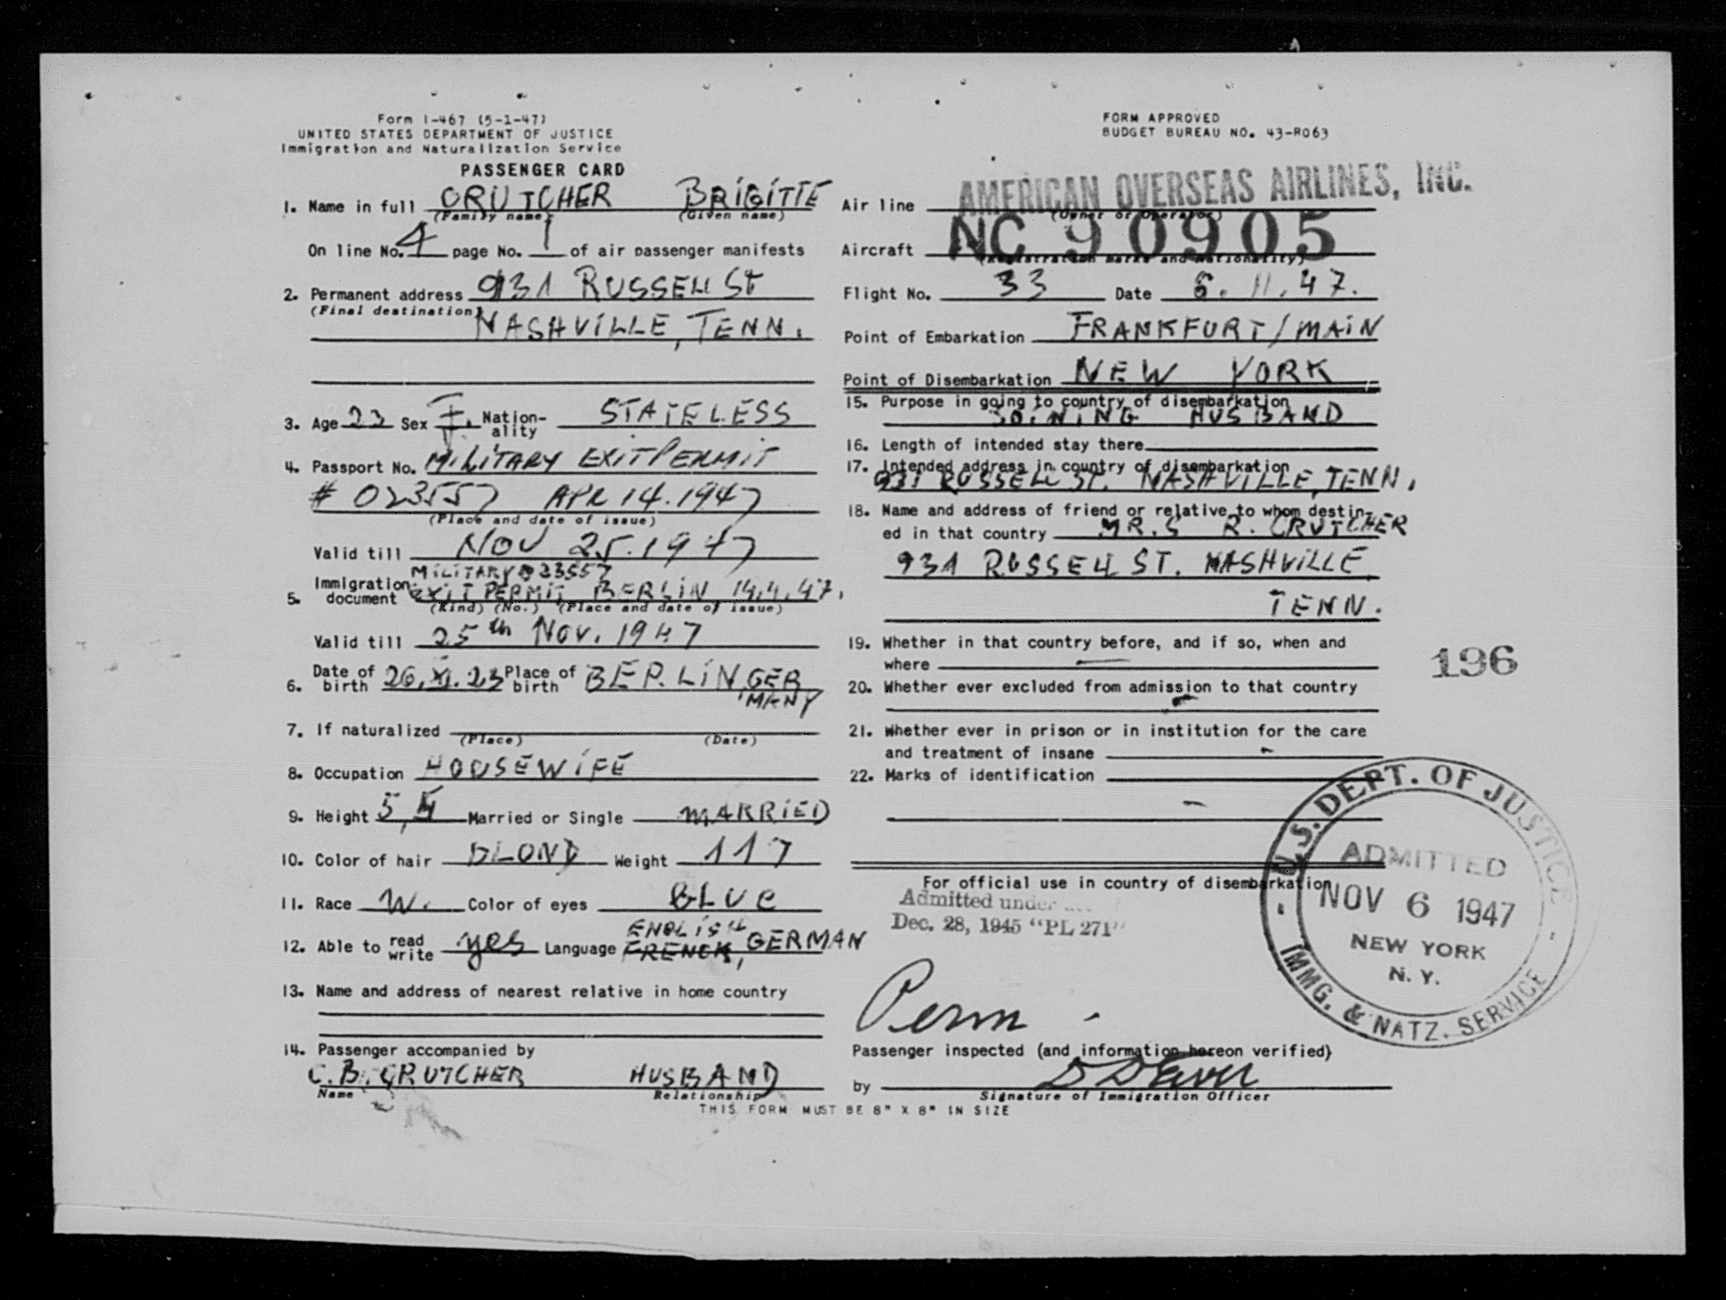 Form I-467 (5-1-47)
UNITED STATES DEPARTMENT OF JUSTICE
Immigration and Naturalization Service
PASSENGER CARD
1. Name in full CRUTCHER BRIGITTE
(Family name) (Given name)
On line No. 4 page No. 1 of air passenger manifests
2. Permanent address 931 RUSSELL ST
(Final destination)
NASHVILLE, TENN.
3. Age 23 Sex F. Nation-ality STATELESS
4. Passport No. MILITARY EXIT PERMIT
# 023557 APR 14. 1947
(Place and date of issue)
Valid till NOV 25. 1947
MILITARY 023557
5. Immigration document EXIT PERMIT BERLIN 14.4.47.
(Kind) (No.) (Place and date of issue)
Valid till 25th NOV. 1947
6. Date of birth 26.XI.23 Place of birth BERLIN, GERMANY
7. If naturalized
(Place) (Date)
8. Occupation HOUSEWIFE
9. Height 5,4 Married or Single MARRIED
10. Color of hair BLOND Weight 117
11. Race W. Color of eyes BLUE
ENGLISH
12. Able to read write yes Language FRENCH, GERMAN
13. Name and address of nearest relative in home country
14. Passenger accompanied by
C.B. CRUTCHER HUSBAND
Name Relationship
THIS FORM MUST BE 8" X 8" IN SIZE
FORM APPROVED
BUDGET BUREAU NO. 43-R063
Air line AMERICAN OVERSEAS AIRLINES, INC.
(Owner or Operator)
Aircraft NC 90905
(Registration marks and nationality)
Flight No. 33 Date 5.11.47.
Point of Embarkation FRANKFURT/MAIN
Point of Disembarkation NEW YORK
15. Purpose in going to country of disembarkation
JOINING HUSBAND
16. Length of intended stay there
17. Intended address in country of disembarkation
931 RUSSELL ST. NASHVILLE, TENN.
18. Name and address of friend or relative to whom destin-
ed in that country MR.S R. CRUTCHER
931 RUSSELL ST. NASHVILLE
TENN.
19. Whether in that country before, and if so, when and
where
20. Whether ever excluded from admission to that country
21. Whether ever in prison or in institution for the care
and treatment of insane
22. Marks of identification
196
For official use in country of disembarkation
Admitted under
Dec. 28, 1945 "PL 271"
Perm
Passenger inspected (and information hereon verified)
by
Signature of Immigration Officer
U.S. DEPT. OF JUSTICE
ADMITTED
NOV 6 1947
NEW YORK
N. Y.
IMMG. & NATZ. SERVICE